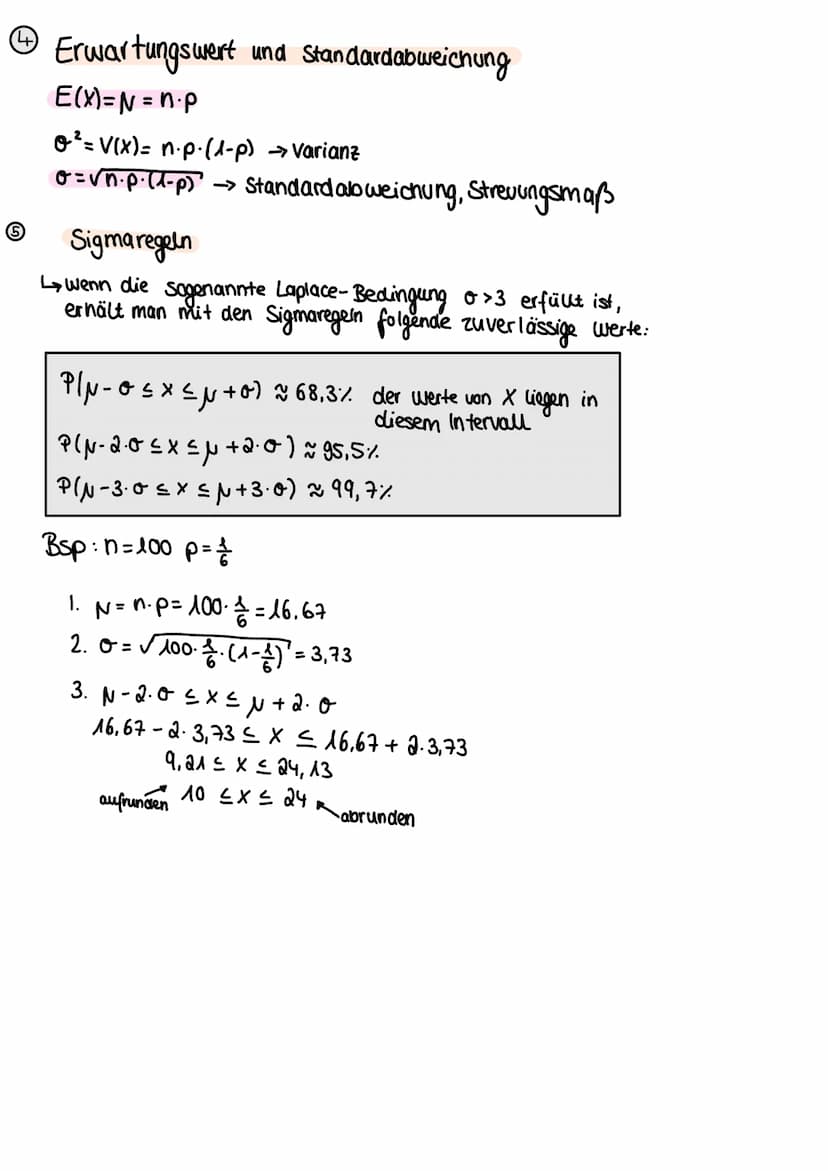 ④ Erwartungswert und Standardabweichung
E(X)=μ=n·p
σ²=V(X)= n·p·(1-p) → Varianz
σ=√n·p·(1-p) → Standardabweichung, Streuungsmaß
⑤ Sigmaregeln
↳ wenn die sogenannte Laplace-Bedingung σ>3 erfüllt ist,
erhält man mit den Sigmaregeln folgende zuverlässige Werte:
P(μ-σ≤X≤μ+σ) ≈ 68,3% der Werte von X liegen in
diesem Intervall
P(μ-2·σ≤X≤μ+2·σ) ≈ 95,5%
P(μ-3·σ≤X≤μ+3·σ) ≈ 99,7%
Bsp: n=100 p=1/6
1. μ= n·p= 100·1/6=16,67
2. σ=√100·1/6·(1-1/6)=3,73
3. μ-2·σ ≤X≤ μ+2·σ
16,67-2·3,73 ≤ X ≤ 16,67+2·3,73
9,21 ≤ X ≤ 24,13
aufrunden 10 ≤X≤ 24 abrunden